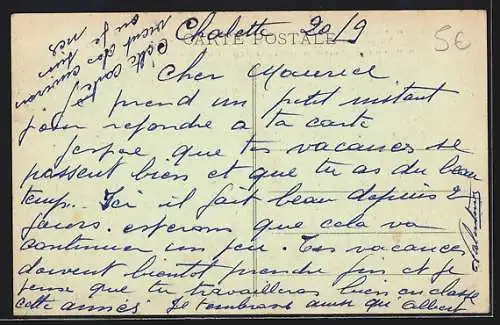 Chalette 20/9
CARTE POSTALE
5€
Cher Maurice
Je prend un petit instant
pour repondre a ta carte
Jespse que tes vacances se
passent bien et que tu as du beau
temp. Ici il fait beau depuis 2
jours. esterons que cela va
continuer un peu. Tes vacances
doivent bientot prendre fin et je
pense que tu travailleras bien en classe
cette année Je t'embrasse ainsi qu'Albert
Cette carte
vient des
environ
ou je
suis